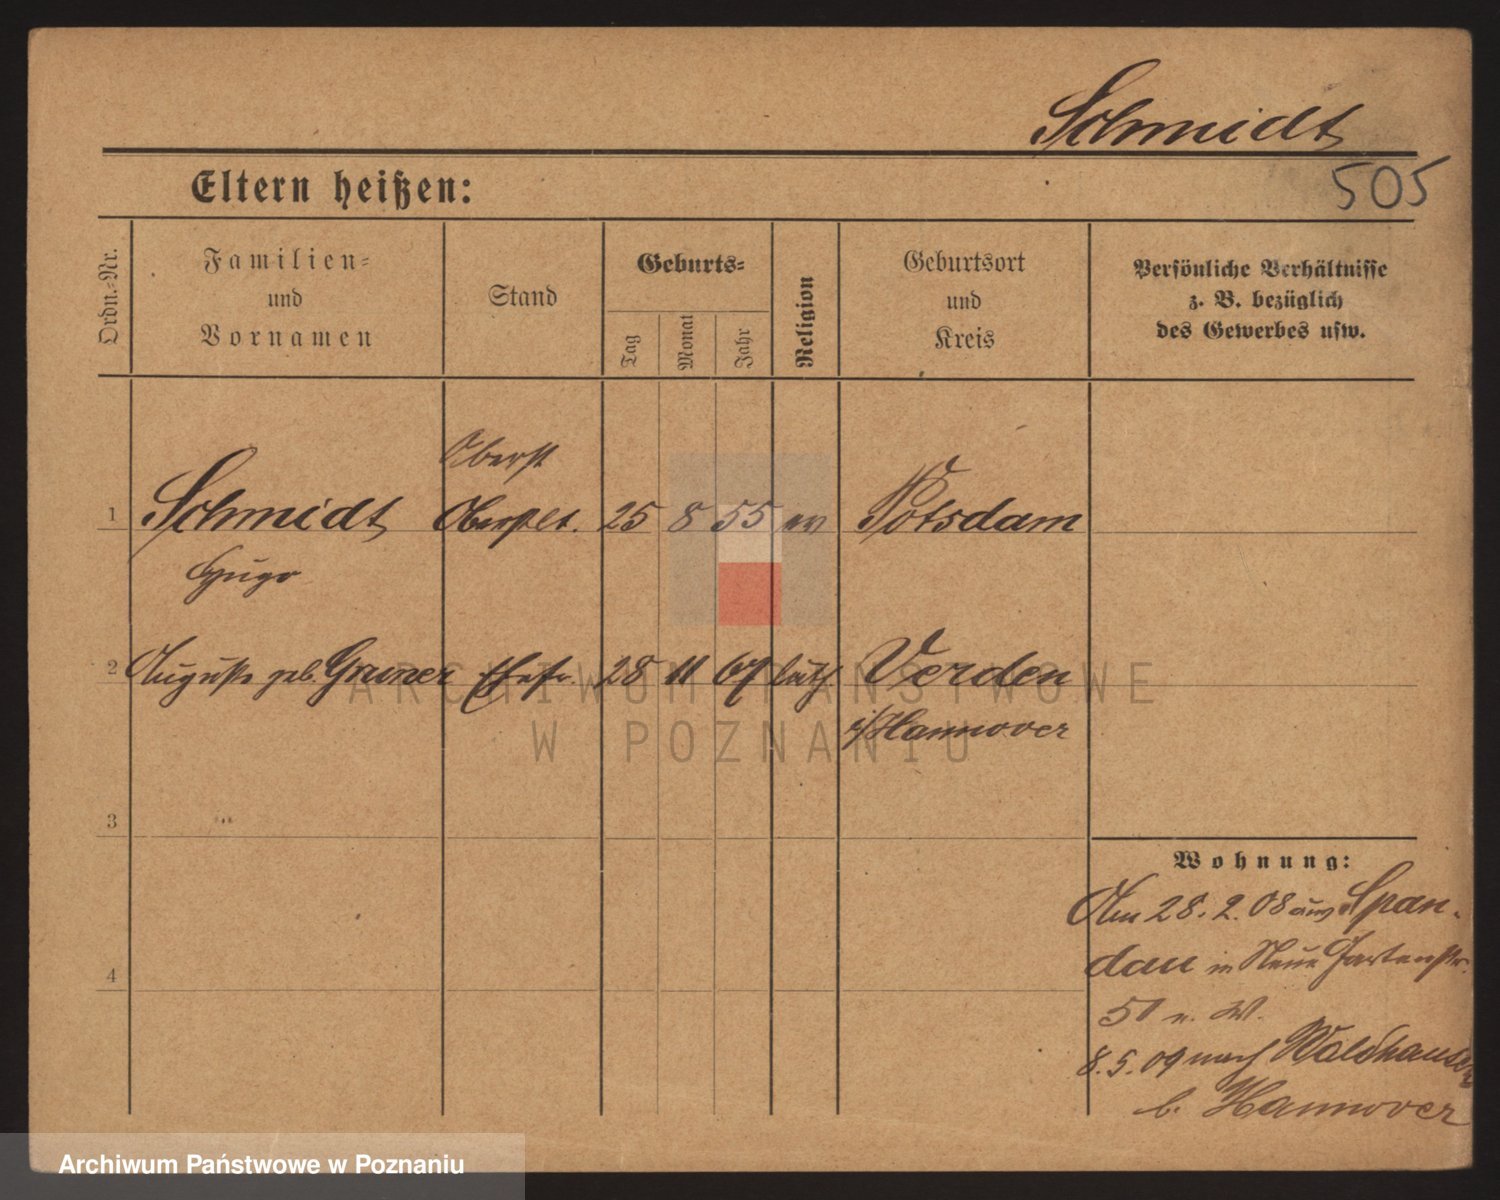 Schmidt
505
Eltern heißen:
Ordn.-Nr.
Familien-
und
Vornamen
Stand
Geburts-
Tag
Monat
Jahr
Religion
Geburtsort
und
Kreis
Persönliche Verhältnisse
z. B. bezüglich
des Gewerbes usw.
Oberst
1 Schmidt Oberstlt. 25 8 55 ev Potsdam
Hugo
2 Auguste geb. Gruner Ehefr. 28 11 67 luth. Verden
i/Hannover
3
4
Wohnung:
Am 28. 2. 08 aus Span-
dau in Neue Gartenstr.
50 n. W.
8. 5. 09 nach Waldhausen
b. Hannover
ARCHIWUM PAŃSTWOWE
W POZNANIU
Archiwum Państwowe w Poznaniu